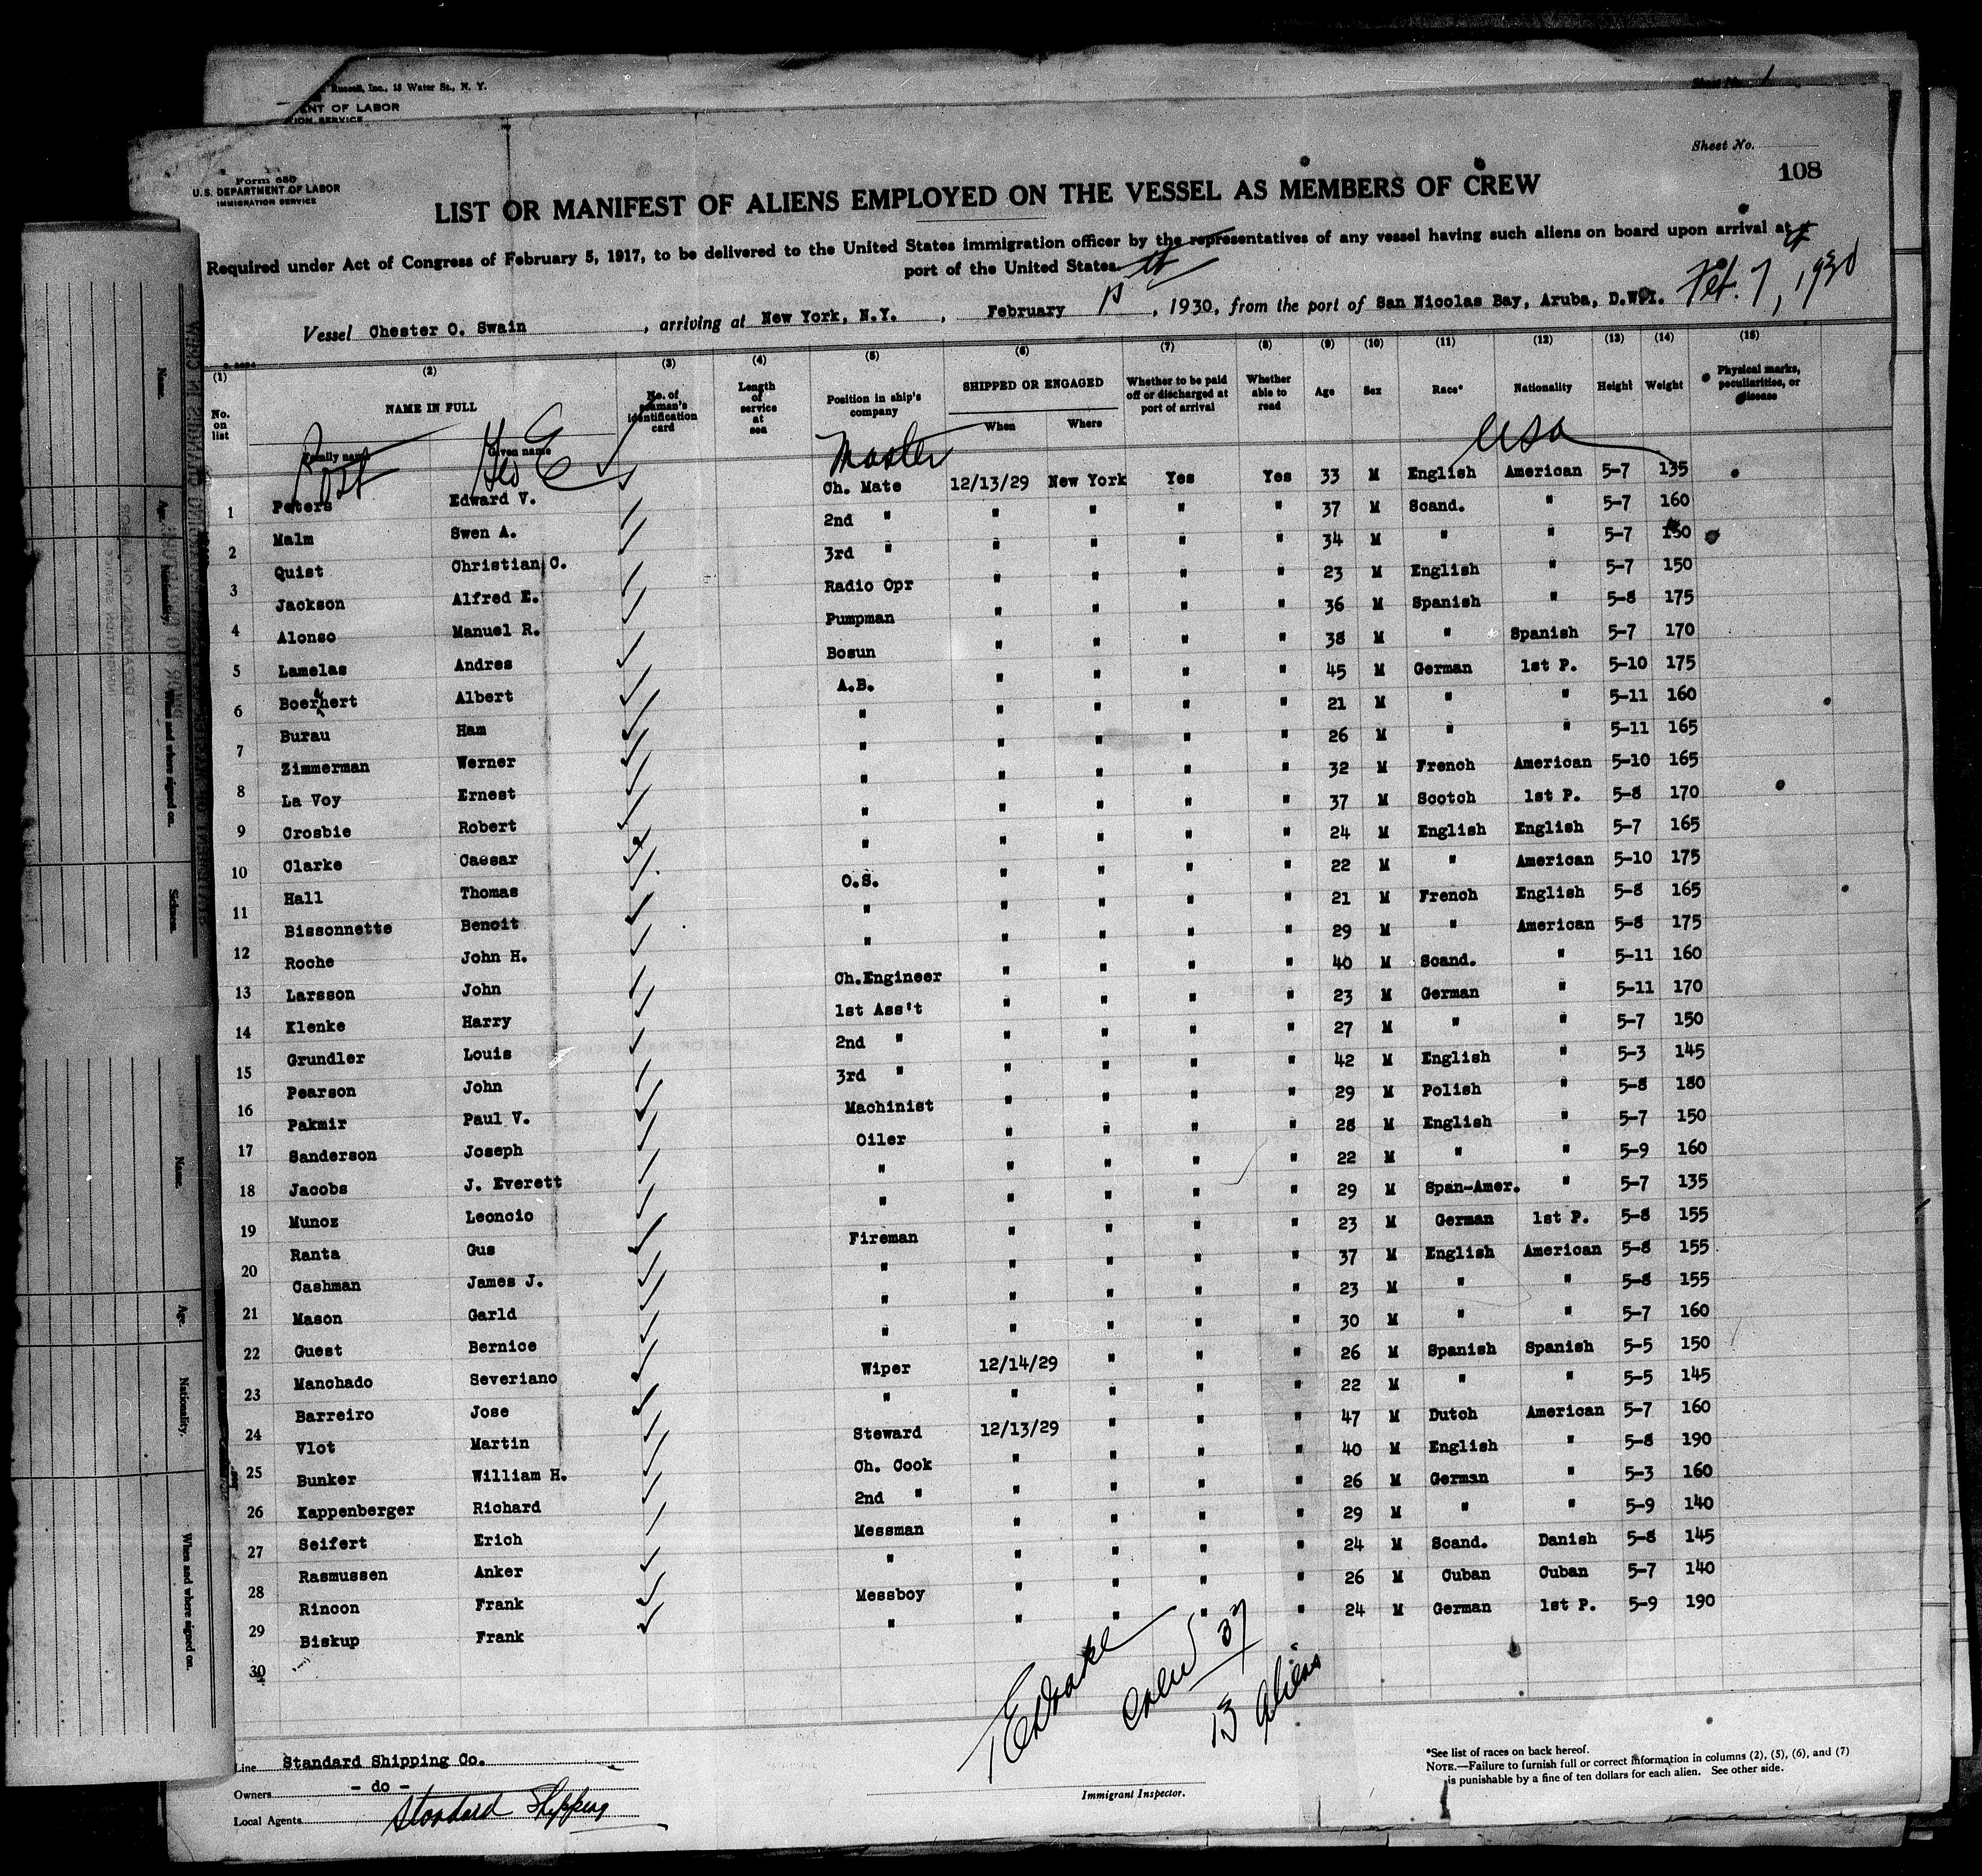 Russell, Inc., 15 Water St., N. Y.
ENT OF LABOR
ION SERVICE
Sheet No. 1
Sheet No.
108
Form 680
U.S. DEPARTMENT OF LABOR
IMMIGRATION SERVICE
LIST OR MANIFEST OF ALIENS EMPLOYED ON THE VESSEL AS MEMBERS OF CREW
Required under Act of Congress of February 5, 1917, to be delivered to the United States immigration officer by the representatives of any vessel having such aliens on board upon arrival at a
port of the United States
Vessel Chester O. Swain, arriving at New York, N.Y., February 1st, 1930, from the port of San Nicolas Bay, Aruba, D.W.I. Feb. 7, 1930
(1) (2) (3) (4) (5) (6) (7) (8) (9) (10) (11) (12) (13) (14) (15)
No. on list NAME IN FULL Family name Given name No. of seaman's identification card Length of service at sea Position in ship's company SHIPPED OR ENGAGED When Where Whether to be paid off or discharged at port of arrival Whether able to read Age Sex Race* Nationality Height Weight Physical marks, peculiarities, or disease
Post Geo E ✓ Master USA
1 Peters Edward V. ✓ Ch. Mate 12/13/29 New York Yes Yes 33 M English American 5-7 135
2 Malm Swen A. ✓ 2nd " " " " " 37 M Scand. " 5-7 160
Quist Christian C. ✓ 3rd " " " " " 34 M " " 5-7 150
3 Jackson Alfred E. ✓ Radio Opr " " " " 23 M English " 5-7 150
4 Alonso Manuel R. ✓ Pumpman " " " " 36 M Spanish " 5-8 175
5 Lamelas Andres ✓ Bosun " " " " 38 M " Spanish 5-7 170
6 Boerhert Albert ✓ A.B. " " " " 45 M German 1st P. 5-10 175
Burau Ham ✓ " " " " " 21 M " " 5-11 160
7 Zimmerman Werner ✓ " " " " " 26 M " " 5-11 165
8 La Voy Ernest ✓ " " " " " 32 M French American 5-10 165
9 Crosbie Robert ✓ " " " " " 37 M Scotch 1st P. 5-8 170
10 Clarke Caesar ✓ " " " " " 24 M English English 5-7 165
Hall Thomas ✓ O.S. " " " " 22 M " American 5-10 175
11 Bissonnette Benoit ✓ " " " " " 21 M French English 5-8 165
12 Roche John H. ✓ " " " " " 29 M " American 5-8 175
13 Larsson John ✓ Ch.Engineer " " " " 40 M Scand. " 5-11 160
14 Klenke Harry ✓ 1st Ass't " " " " 23 M German " 5-11 170
Grundler Louis ✓ 2nd " " " " " 27 M " " 5-7 150
15 Pearson John ✓ 3rd " " " " " 42 M English " 5-3 145
16 Pakmir Paul V. ✓ Machinist " " " " 29 M Polish " 5-8 180
17 Sanderson Joseph ✓ Oiler " " " " 28 M English " 5-7 150
18 Jacobs J. Everett ✓ " " " " " 22 M " " 5-9 160
19 Munoz Leoncio ✓ " " " " " 29 M Span-Amer. " 5-7 135
Ranta Gus ✓ Fireman " " " " 23 M German 1st P. 5-8 155
20 Cashman James J. ✓ " " " " " 37 M English American 5-8 155
21 Mason Garld ✓ " " " " " 23 M " " 5-8 155
22 Guest Bernice ✓ " " " " " 30 M " " 5-7 160
23 Manchado Severiano ✓ Wiper 12/14/29 " " " 26 M Spanish Spanish 5-5 150
Barreiro Jose ✓ " " " " " 22 M " " 5-5 145
24 Vlot Martin ✓ Steward 12/13/29 " " " 47 M Dutch American 5-7 160
25 Bunker William H. ✓ Ch. Cook " " " " 40 M English " 5-8 190
26 Kappenberger Richard ✓ 2nd " " " " " 26 M German " 5-3 160
27 Seifert Erich ✓ Messman " " " " 29 M " " 5-9 140
Rasmussen Anker ✓ " " " " " 24 M Scand. Danish 5-8 145
28 Rincon Frank ✓ Messboy " " " " 26 M Cuban Cuban 5-7 140
29 Biskup Frank ✓ " " " " " 24 M German 1st P. 5-9 190
30
Crew 37
13 Aliens
Line Standard Shipping Co.
Owners - do -
Local Agents Standard Shipping
Immigrant Inspector.
*See list of races on back hereof.
NOTE.—Failure to furnish full or correct information in columns (2), (5), (6), and (7)
is punishable by a fine of ten dollars for each alien. See other side.
Name.
Age.
Nationality.
When and where signed on.
Name.
Age.
Nationality.
When and where signed on.